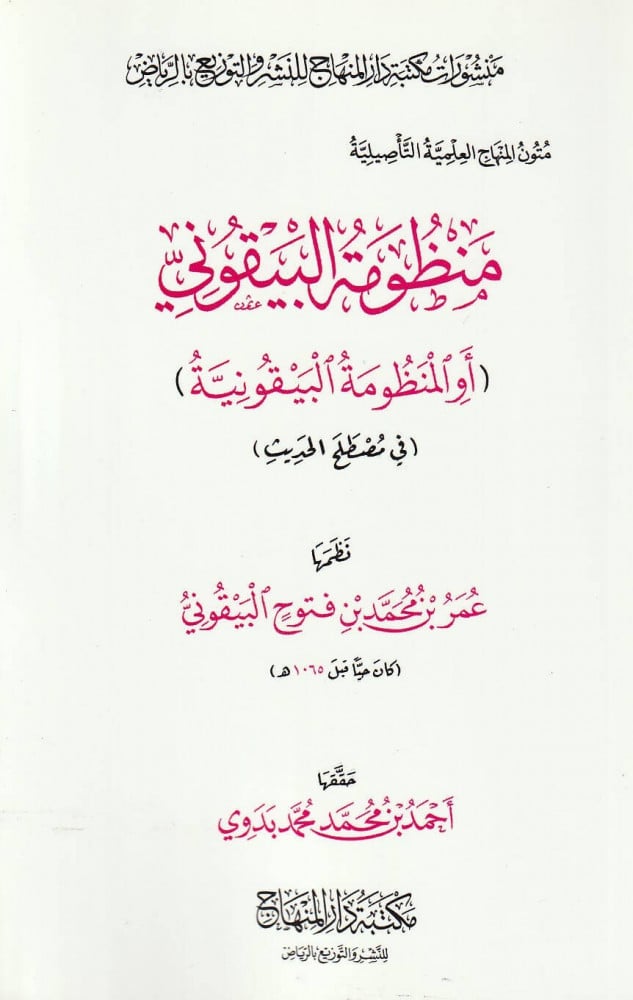 مَنْشُورَاتُ مَكتَبَةِ دَارِ المِنْهَاجِ لِلنَّشْرِ وَالتَّوْزِيعِ بِالرِّيَاضِ
مُتُونُ المِنْهَاجِ العِلْمِيَّةُ التَّأْصِيلِيَّةُ
مَنْظُومَةُ البَيْقُونِيِّ
(أَوِ ٱلْمَنْظُومَةُ ٱلْبَيْقُونِيَّةُ)
(فِي مُصْطَلَحِ الحَدِيثِ)
نَظَمَهَا
عُمَرُ بْنُ مُحَمَّدِ بْنِ فتُوحٍ ٱلْبَيْقُونِيُّ
(كَانَ حَيًّا قَبْلَ ١٠٦٥ هـ)
حَقَّقَهَا
أَحْمَدُ بْنُ مُحَمَّد مُحَمَّد بَدَوِي
مَكْتَبَةُ دَارِ المِنْهَاجِ
لِلنَّشْرِ وَالتَّوْزِيعِ بِالرِّيَاضِ